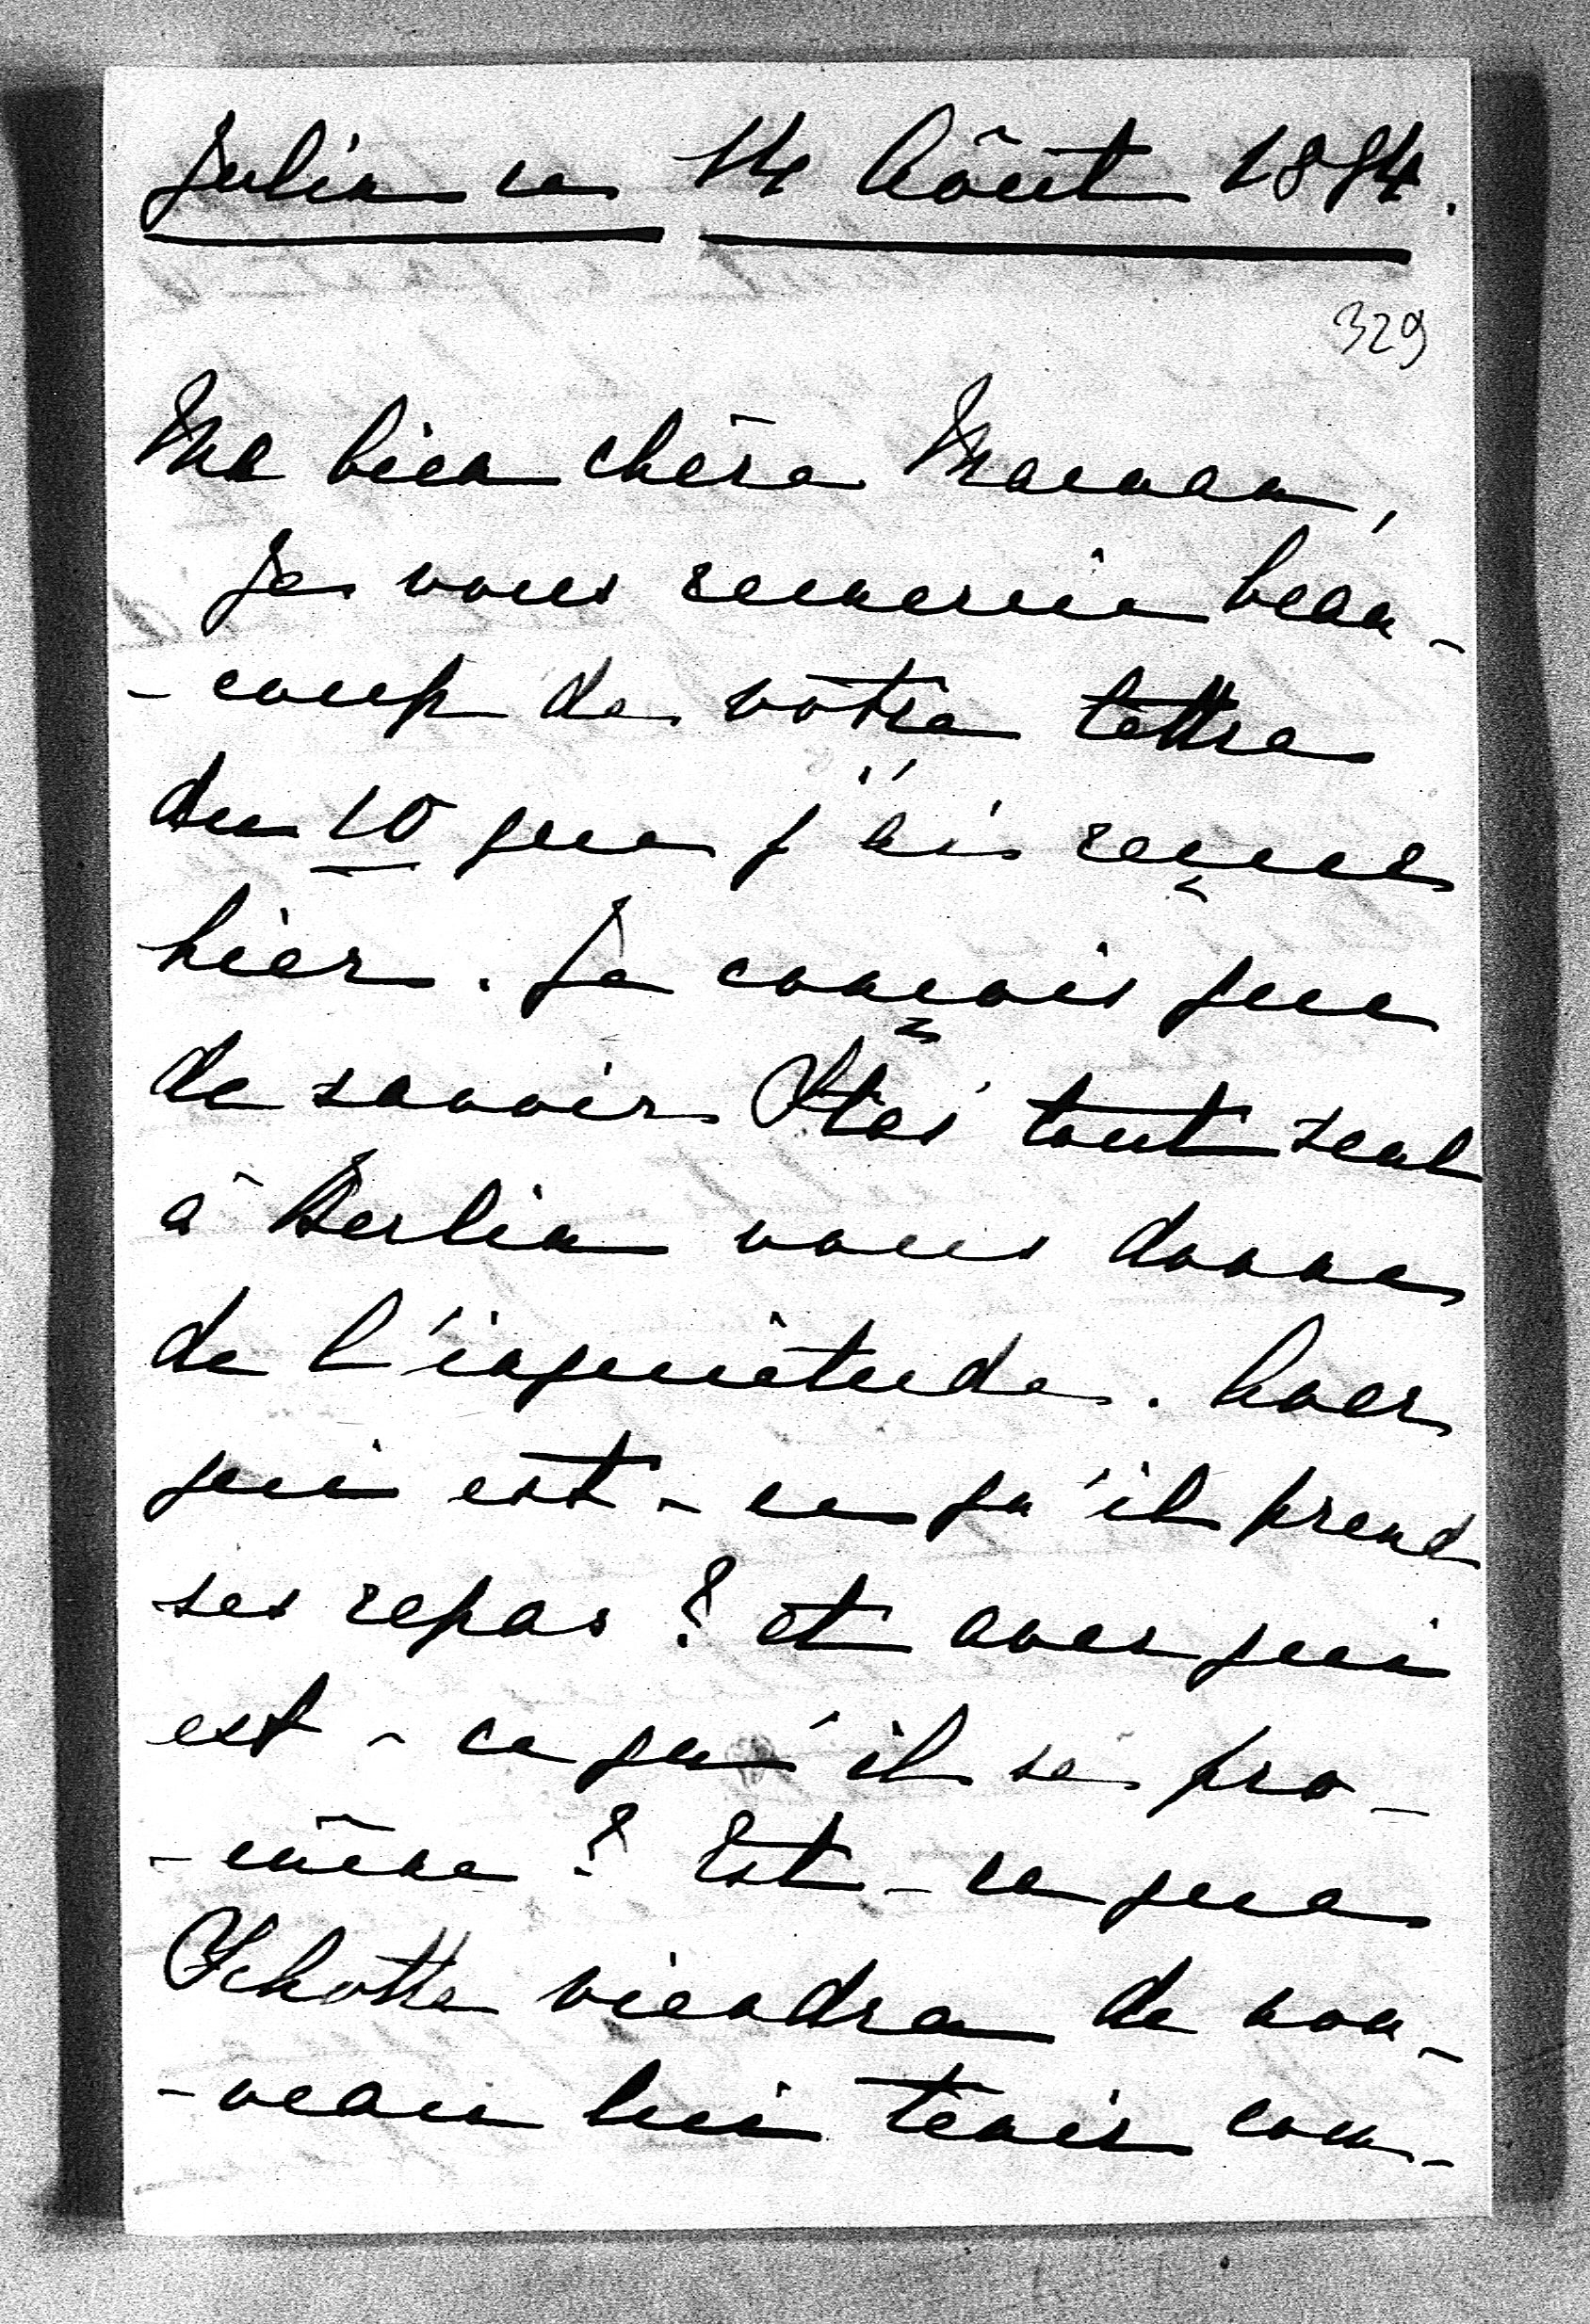 Julin ce 14 Août 1894.
329
Ma bien chère Maman,
Je vous remercie beau-
-coup de votre lettre
du 10 que j'ai reçue
hier. Je conçois que
de savoir Stas tout seul
à Berlin vous donne
de l'inquiétude. Avec
qui est-ce qu'il prend
ses repas ? et avec qui
est-ce qu'il se pro-
-mène ? Est-ce que
Schotte viendra de nou-
-veau lui tenir com-